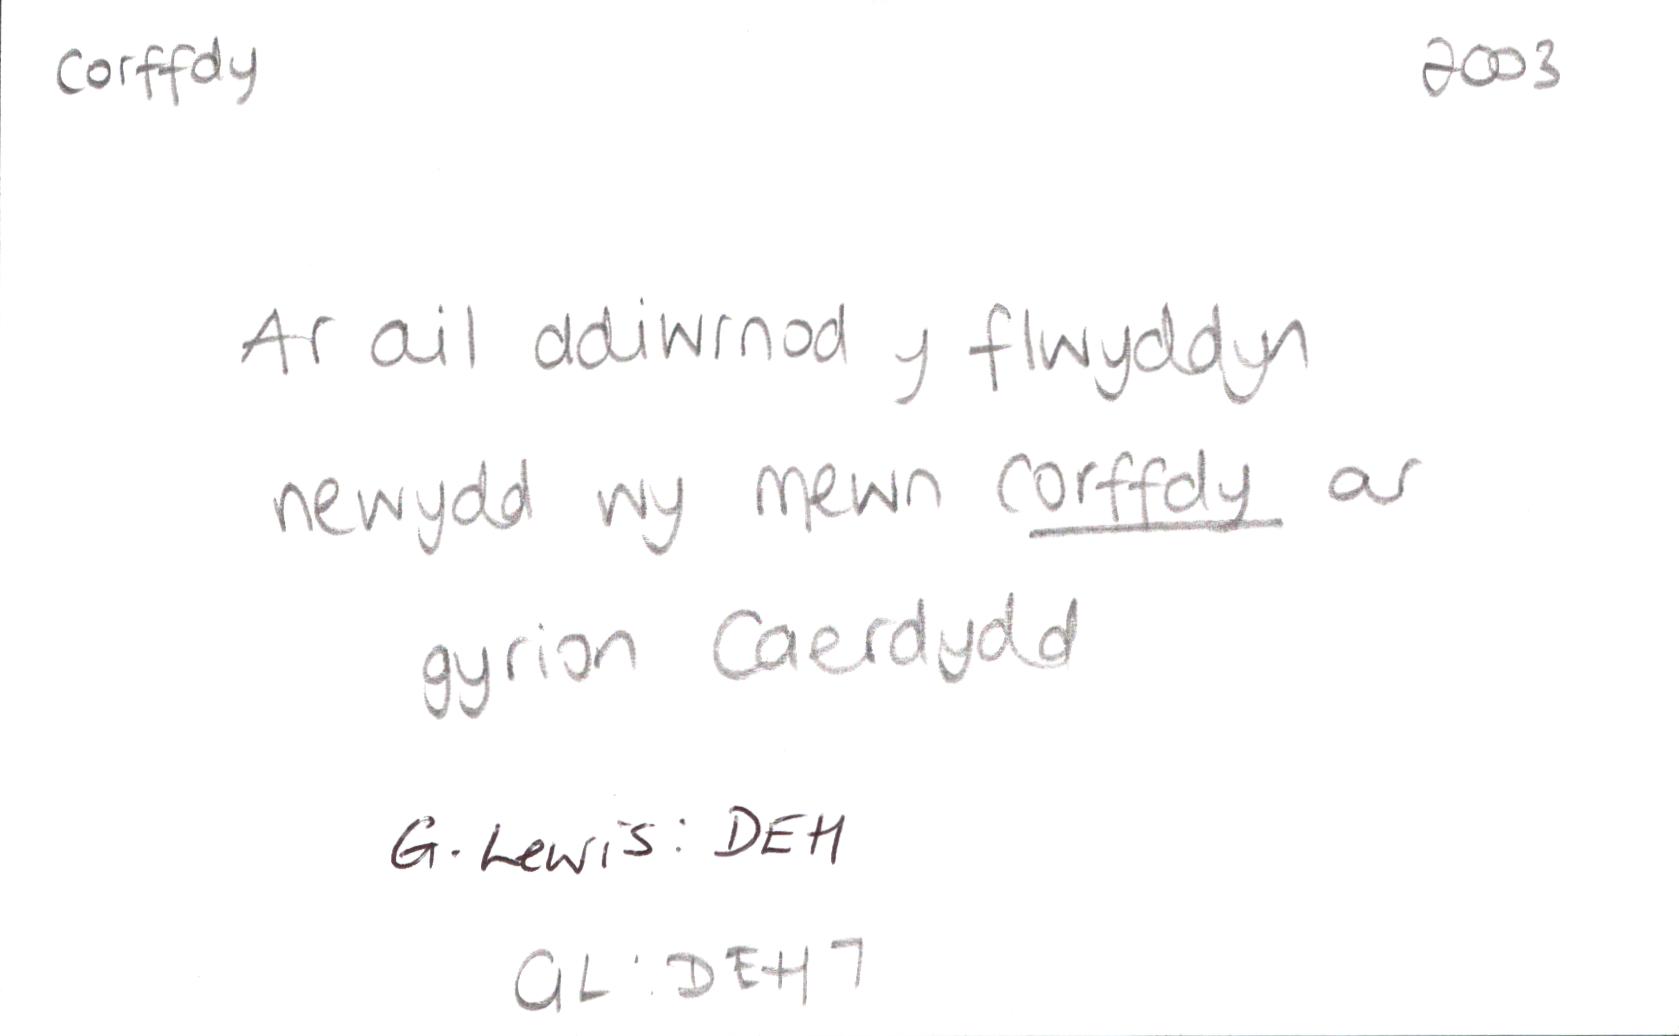 Corffdy 2003
Ar ail ddiwrnod y flwyddyn
newydd wy mewn corffdy ar
gyrion Caerdydd
G. Lewis: DEH
GL: DEH 7